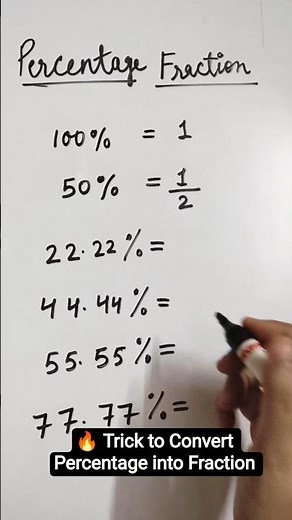 Percentage Fraction
100% = 1
50% = 1/2
22.22% =
44.44% =
55.55% =
77.77% =
🔥 Trick to Convert
Percentage into Fraction